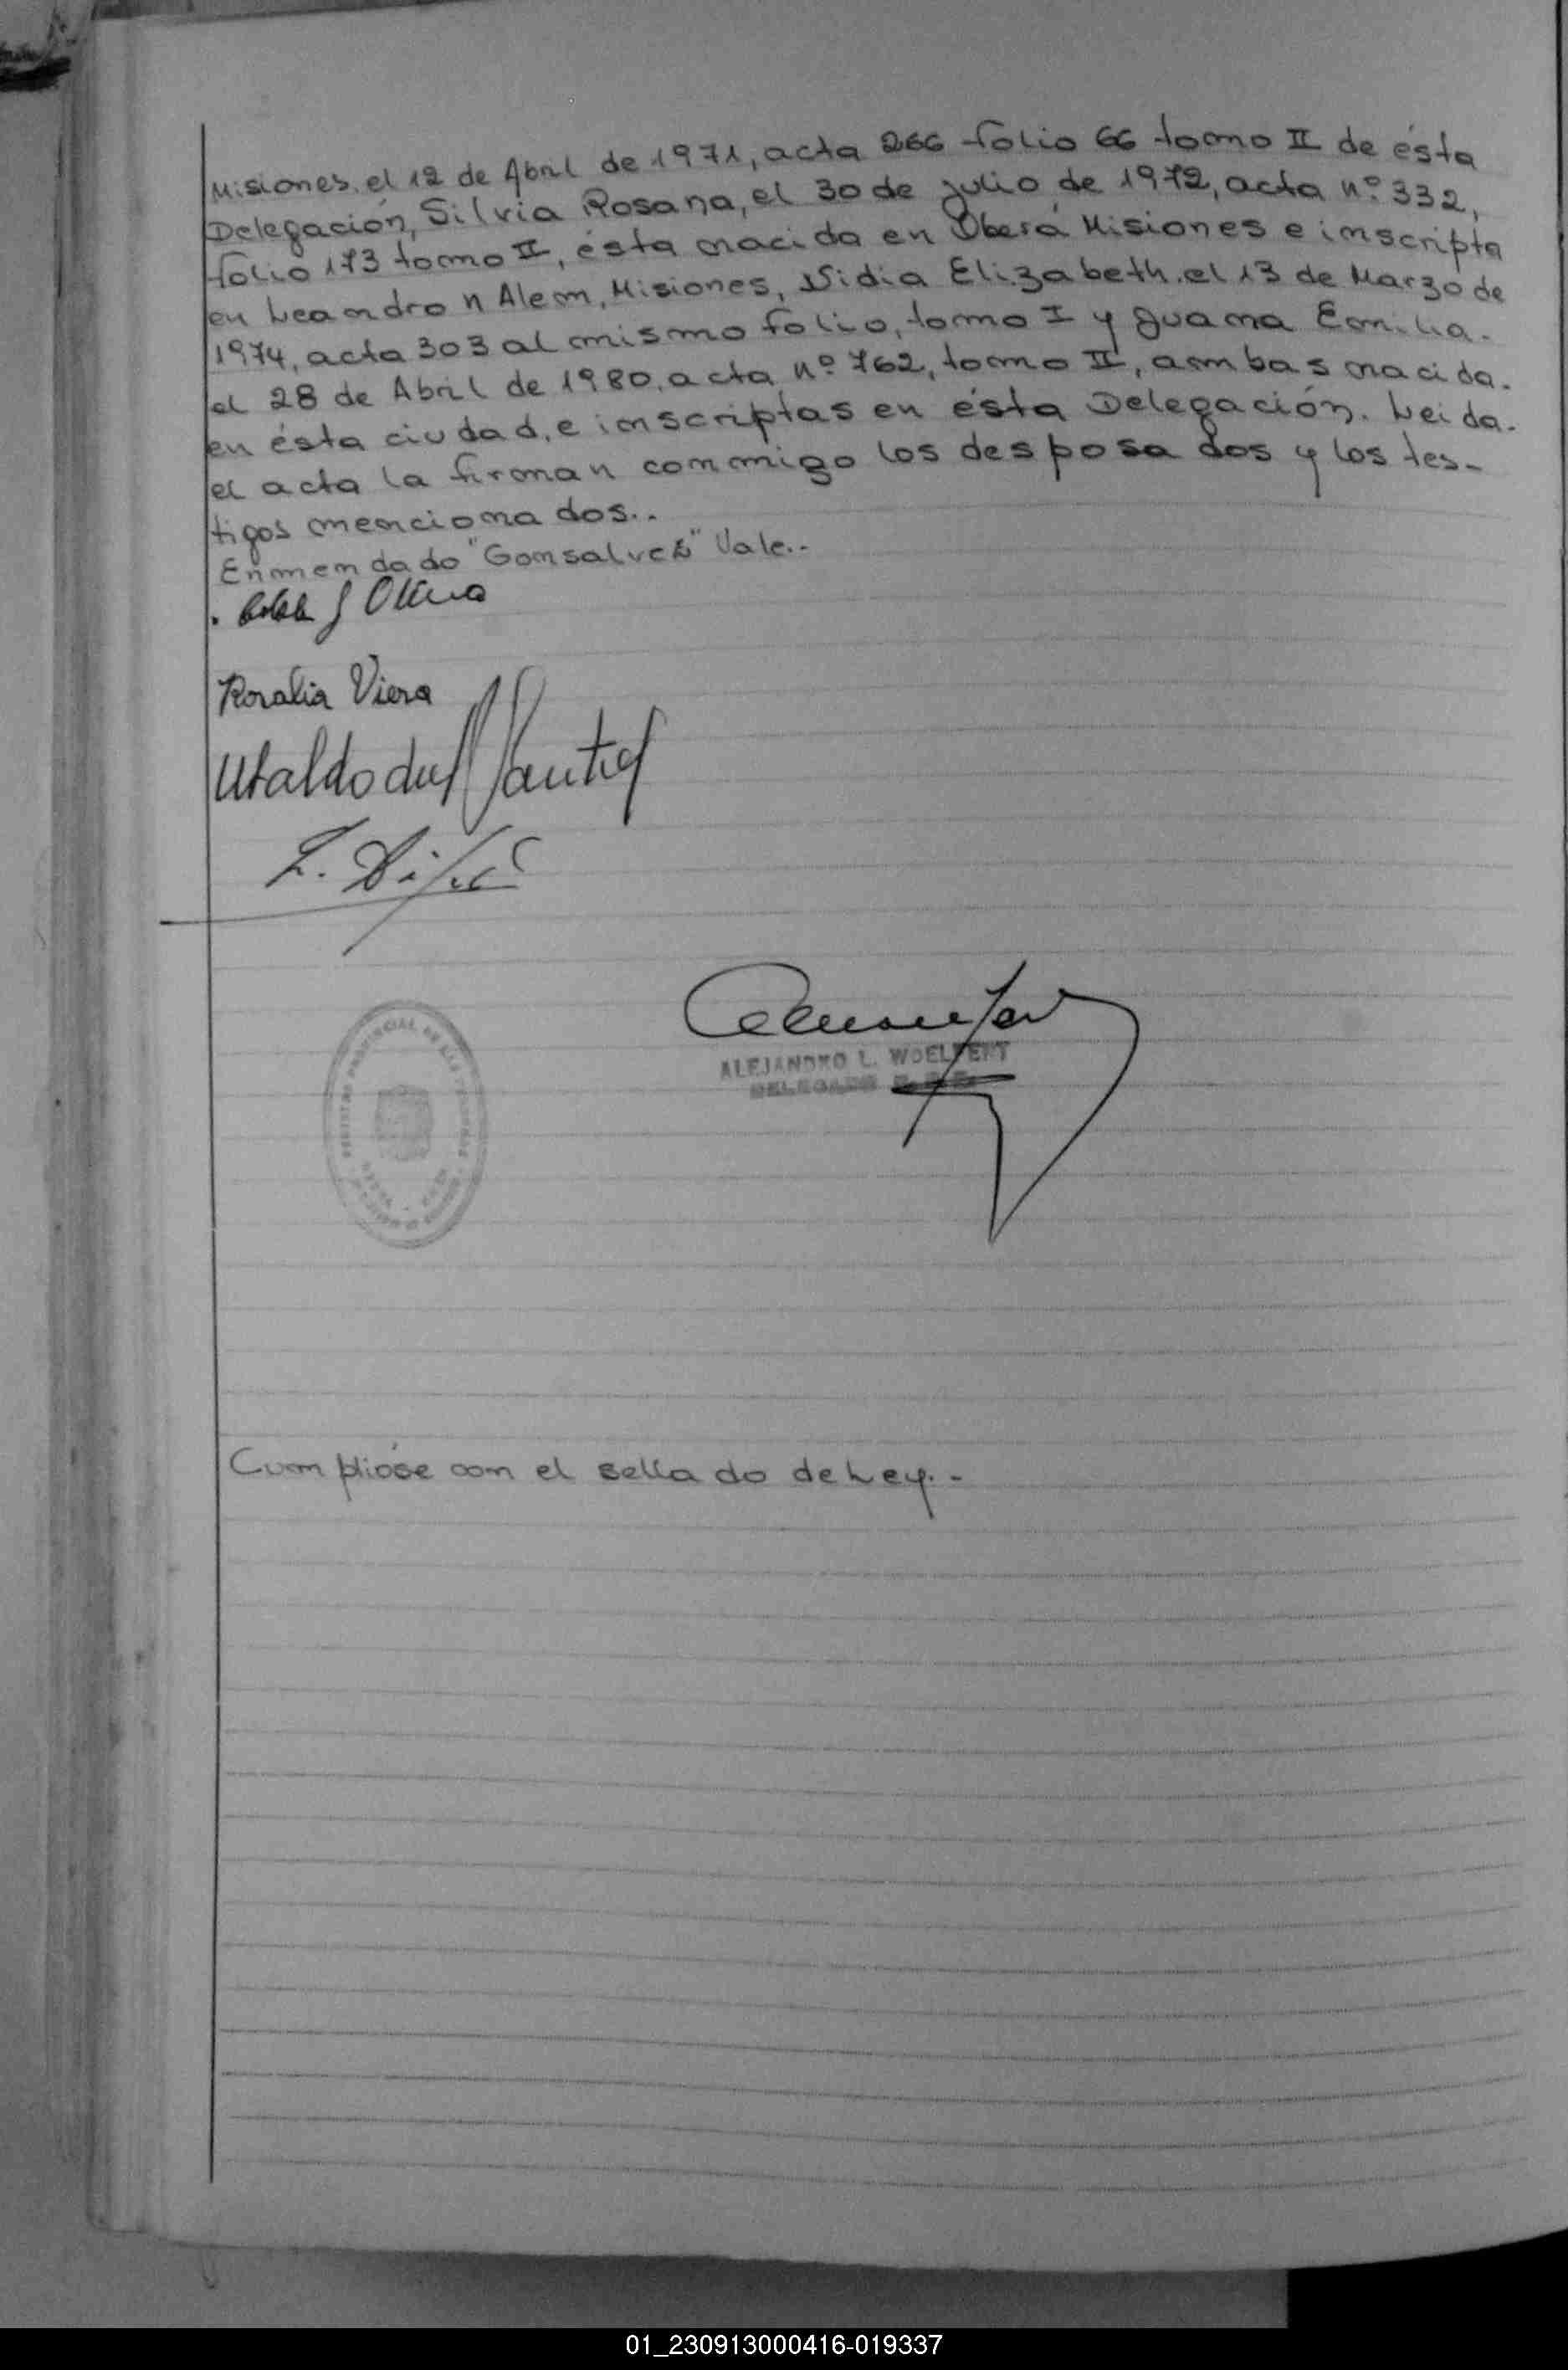 Misiones, el 12 de Abril de 1971, acta 266 folio 66 tomo II de ésta
Delegación, Silvia Rosana, el 30 de Julio de 1972, acta nº 332,
folio 173 tomo II, ésta nacida en Oberá Misiones e inscripta
en Leandro N Alem, Misiones, Nidia Elizabeth. el 13 de Marzo de
1974, acta 303 al mismo folio, tomo I y Juana Emilia.
el 28 de Abril de 1980, acta nº 762, tomo II, ambas nacida.
en ésta ciudad, e inscriptas en ésta Delegación. Leida.
el acta la firman conmigo los desposados y los tes-
tigos mencionados..
Enmendado "Gonsalvez" Vale.-
Rosalia Viera
ALEJANDRO L. WOELFERT
DELEGADO
Cumplióse con el sellado de Ley.-
01_230913000416-019337